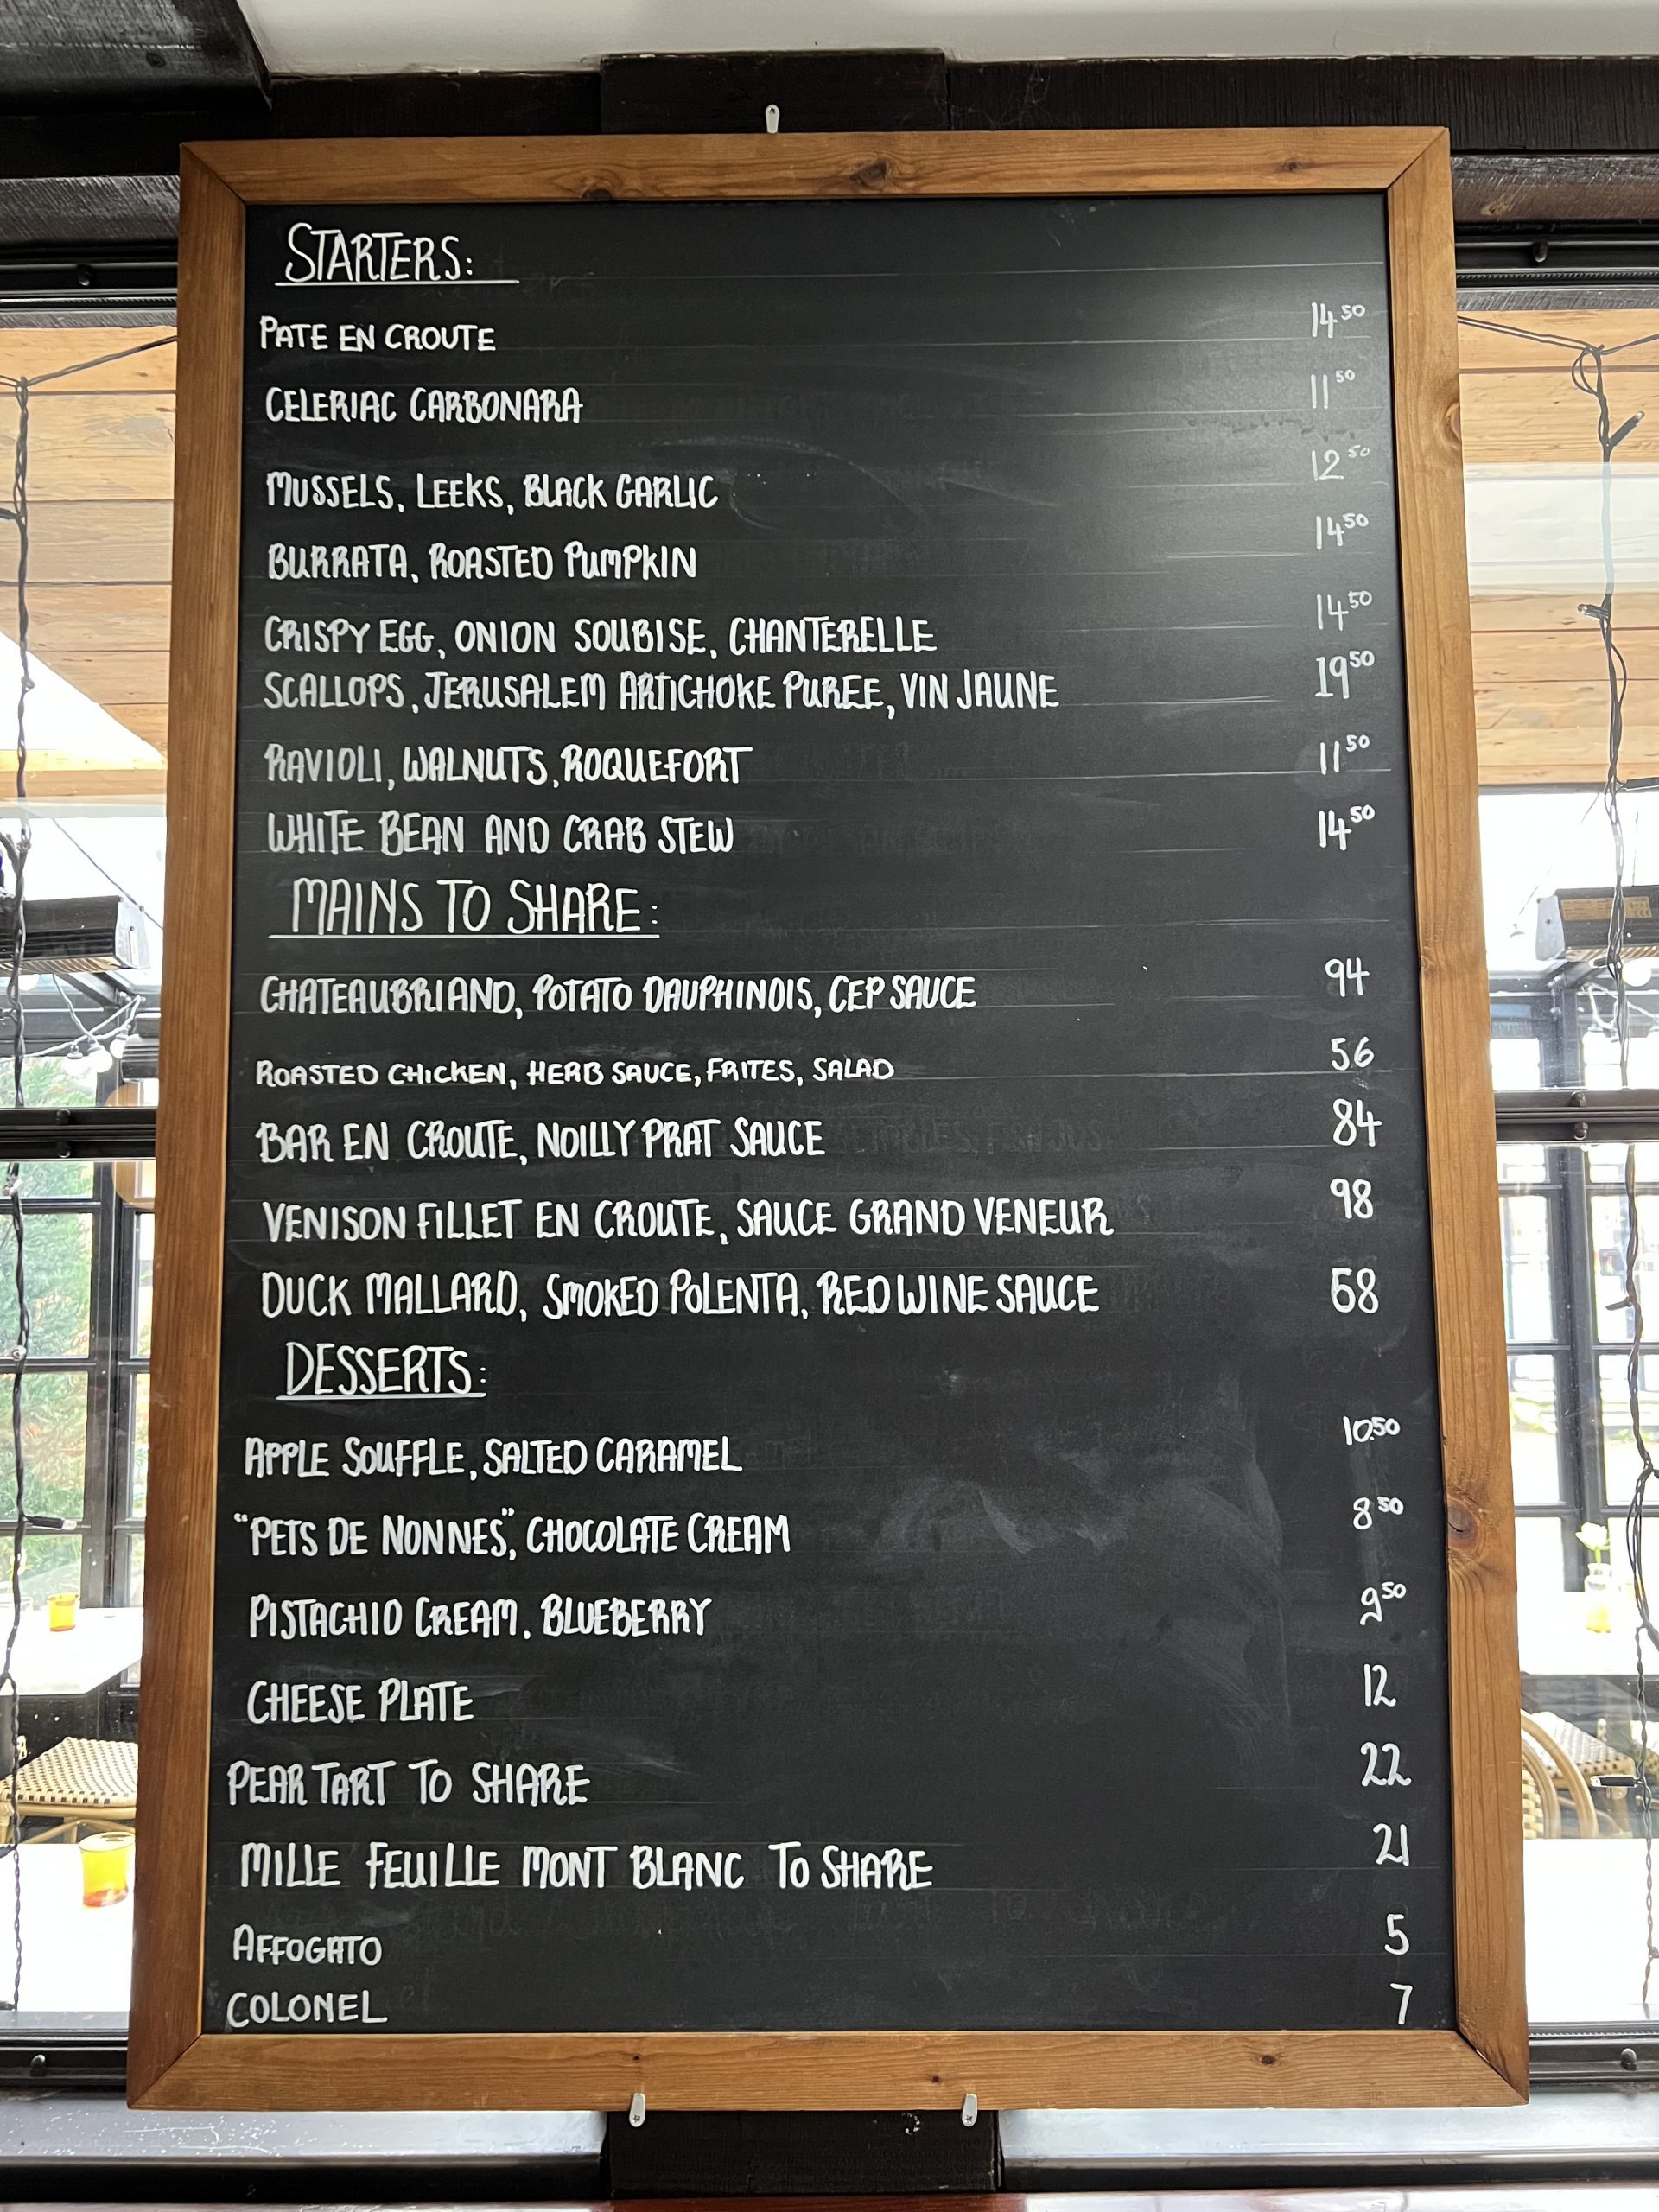 STARTERS:
PATE EN CROUTE 14 50
CELERIAC CARBONARA 11 50
MUSSELS, LEEKS, BLACK GARLIC 12 50
BURRATA, ROASTED PUMPKIN 14 50
CRISPY EGG, ONION SOUBISE, CHANTERELLE 14 50
SCALLOPS, JERUSALEM ARTICHOKE PUREE, VIN JAUNE 19 50
RAVIOLI, WALNUTS, ROQUEFORT 11 50
WHITE BEAN AND CRAB STEW 14 50
MAINS TO SHARE:
CHATEAUBRIAND, POTATO DAUPHINOIS, CEP SAUCE 94
ROASTED CHICKEN, HERB SAUCE, FRITES, SALAD 56
BAR EN CROUTE, NOILLY PRAT SAUCE 84
VENISON FILLET EN CROUTE, SAUCE GRAND VENEUR 98
DUCK MALLARD, SMOKED POLENTA, RED WINE SAUCE 68
DESSERTS:
APPLE SOUFFLE, SALTED CARAMEL 10.50
"PETS DE NONNES", CHOCOLATE CREAM 8 50
PISTACHIO CREAM, BLUEBERRY 9 50
CHEESE PLATE 12
PEAR TART TO SHARE 22
MILLE FEUILLE MONT BLANC TO SHARE 21
AFFOGATO 5
COLONEL 7